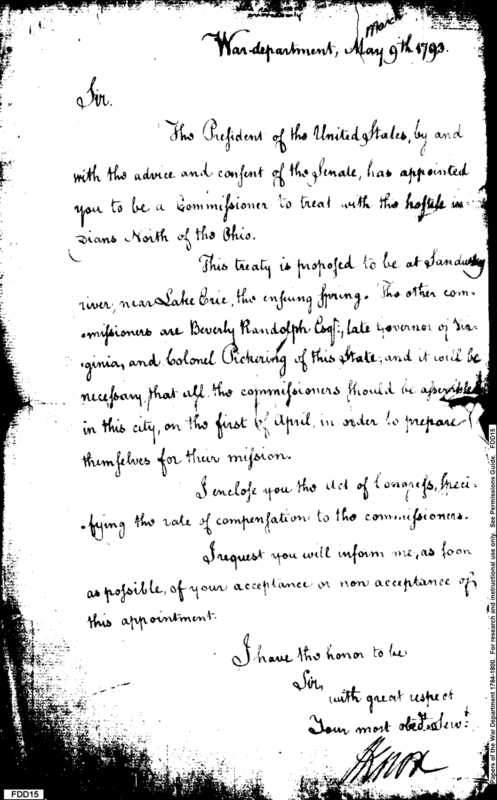 March
War-department, May 9th 1793.
Sir.
The President of the United States, by and
with the advice and consent of the Senate, has appointed
you to be a Commissioner to treat with the hostile in-
dians North of the Ohio.
This treaty is proposed to be at Sandusky
river, near Lake Erie, the ensuing Spring. The other com-
-missioners are Beverly Randolph Esqr., late Governor of Vir-
-ginia, and Colonel Pickering of this State; and it will be
necessary that all the commissioners should be assembled
in this city, on the first of April, in order to prepare
themselves for their mission.
I enclose you the Act of Congress, Speci-
-fying the rate of compensation to the commissioners.
I request you will inform me, as soon
as possible, of your acceptance or non acceptance of
this appointment.
I have the honor to be
Sir,
with great respect
Your most obedt. Servt.
HKnox
FDD15
Papers of the War Department 1784-1800. For research and instructional use only. See Permissions Guide. FDD15